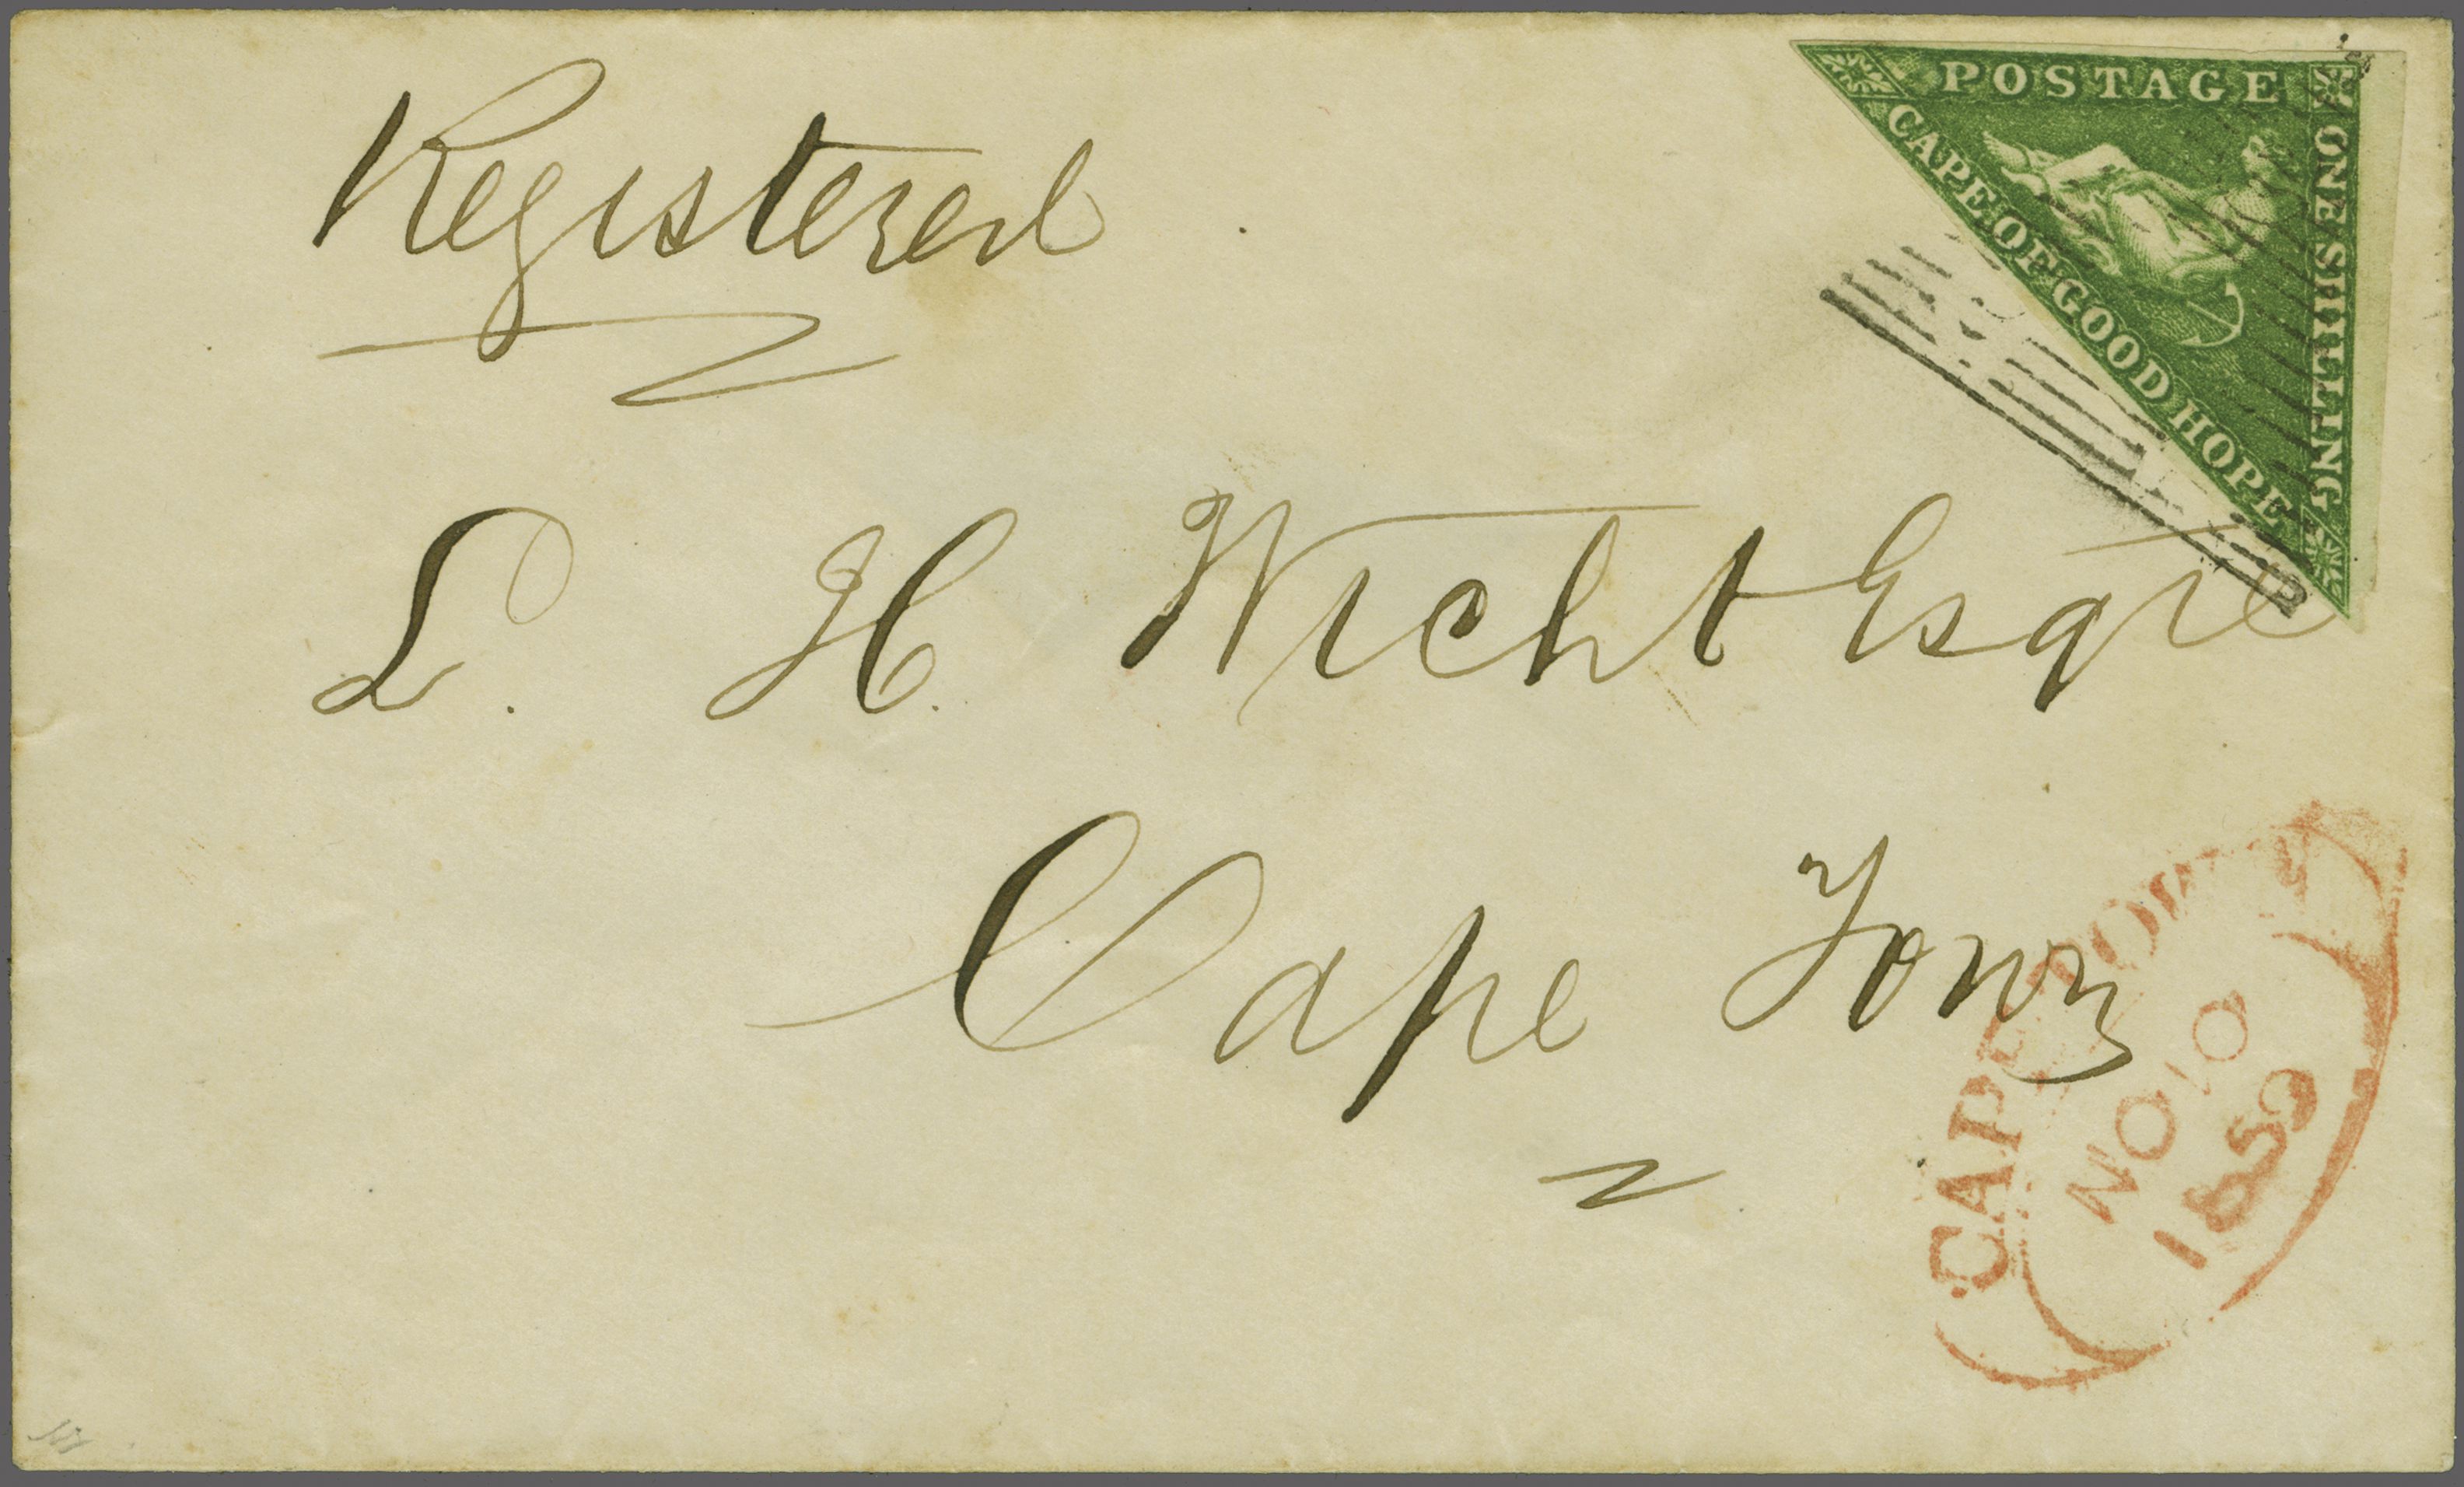 Registered
POSTAGE
CAPE OF GOOD HOPE
ONE SHILLING
L. H. Wicht Esqre
Cape Town
CAPE TOWN
NO 10
1859